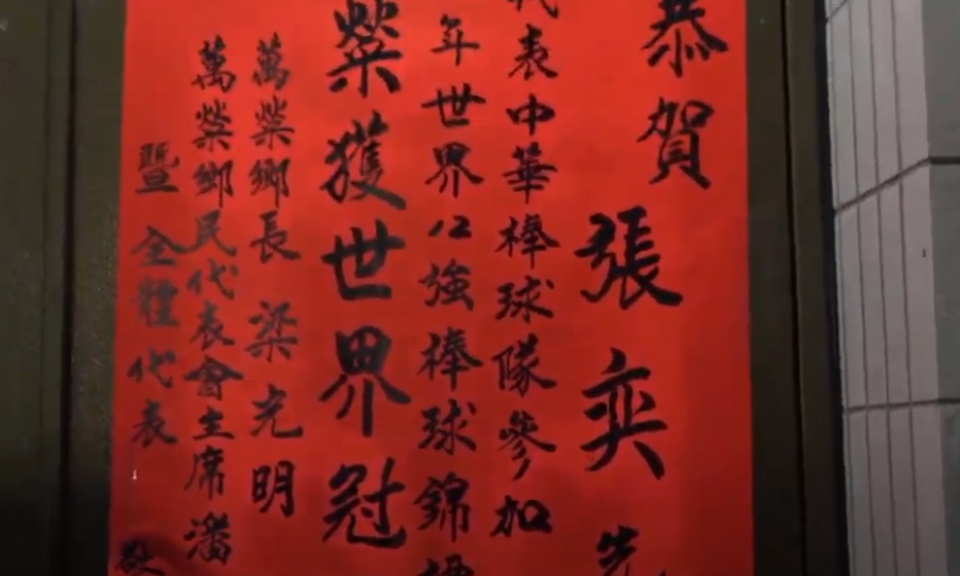 恭賀張奕先
代表中華棒球隊參加
年世界12強棒球錦標
榮獲世界冠
萬榮鄉長 梁光明
萬榮鄉民代表會主席潘
暨全體代表 敬